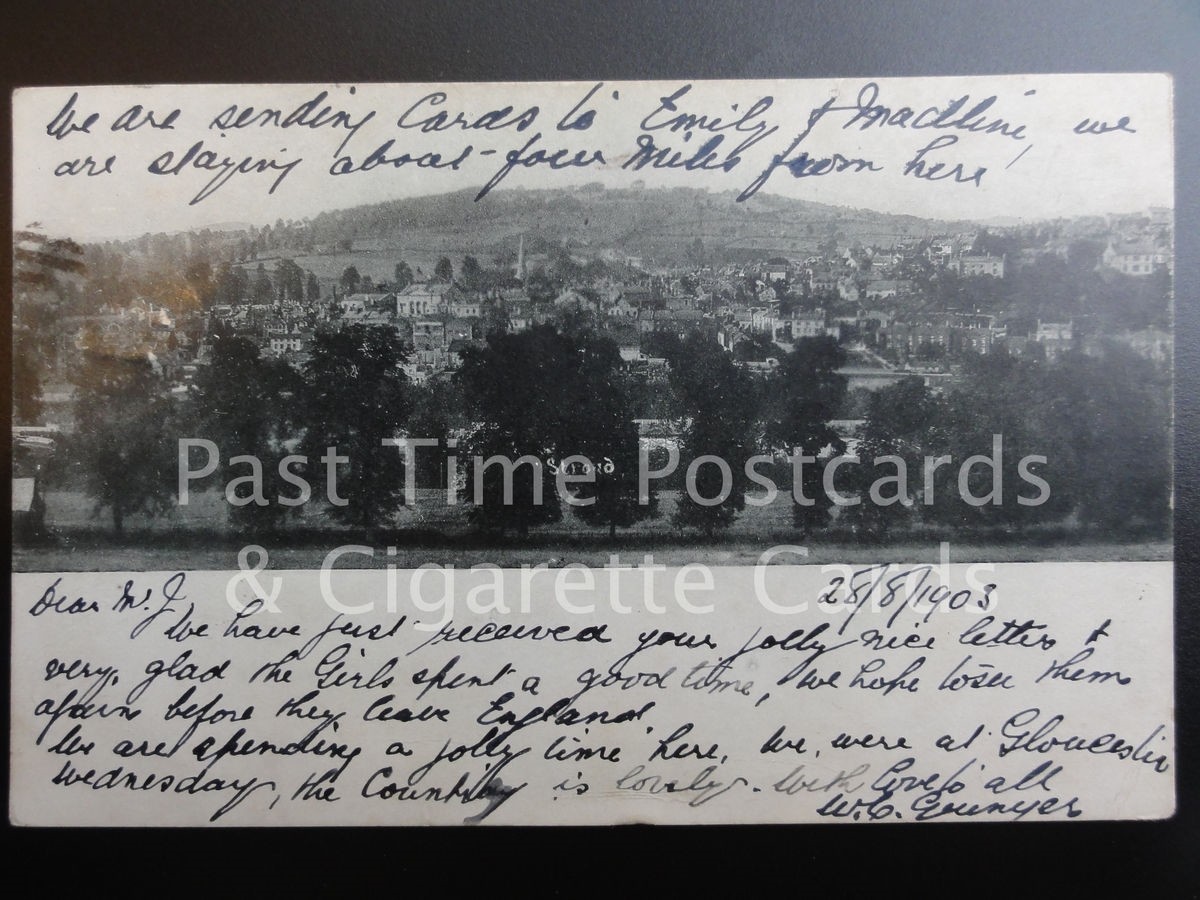 We are sending Cards to Emily & Madline, we
are staying about four Miles from here
Stroud
Past Time Postcards
& Cigarette Cards
28/8/1903
Dear M. J.
We have just received your jolly nice letter &
very glad the Girls spent a good time, we hope to see them
again before they leave England.
We are spending a jolly time here, we were at Gloucester
Wednesday, the Country is lovely. With love to all
W. C.